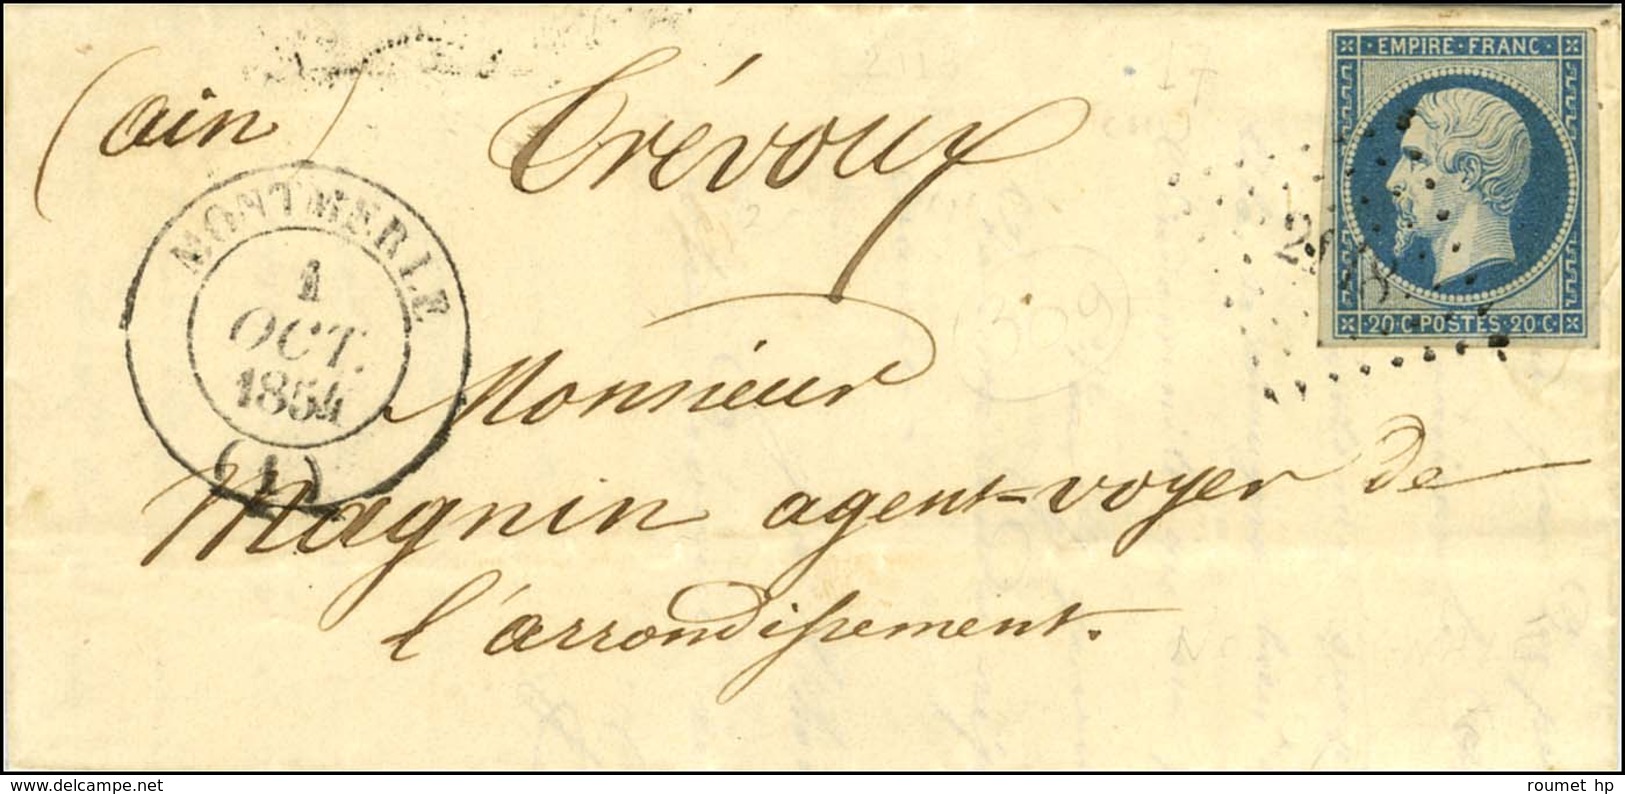 (ain) Trévoux
EMPIRE·FRANC·
20·C·POSTES·20·C
MONTMERLE
1
OCT.
1854
(1)
Monsieur
Magnin agent-voyer de
l'arrondissement.
309
delcampe.net
roumet hp